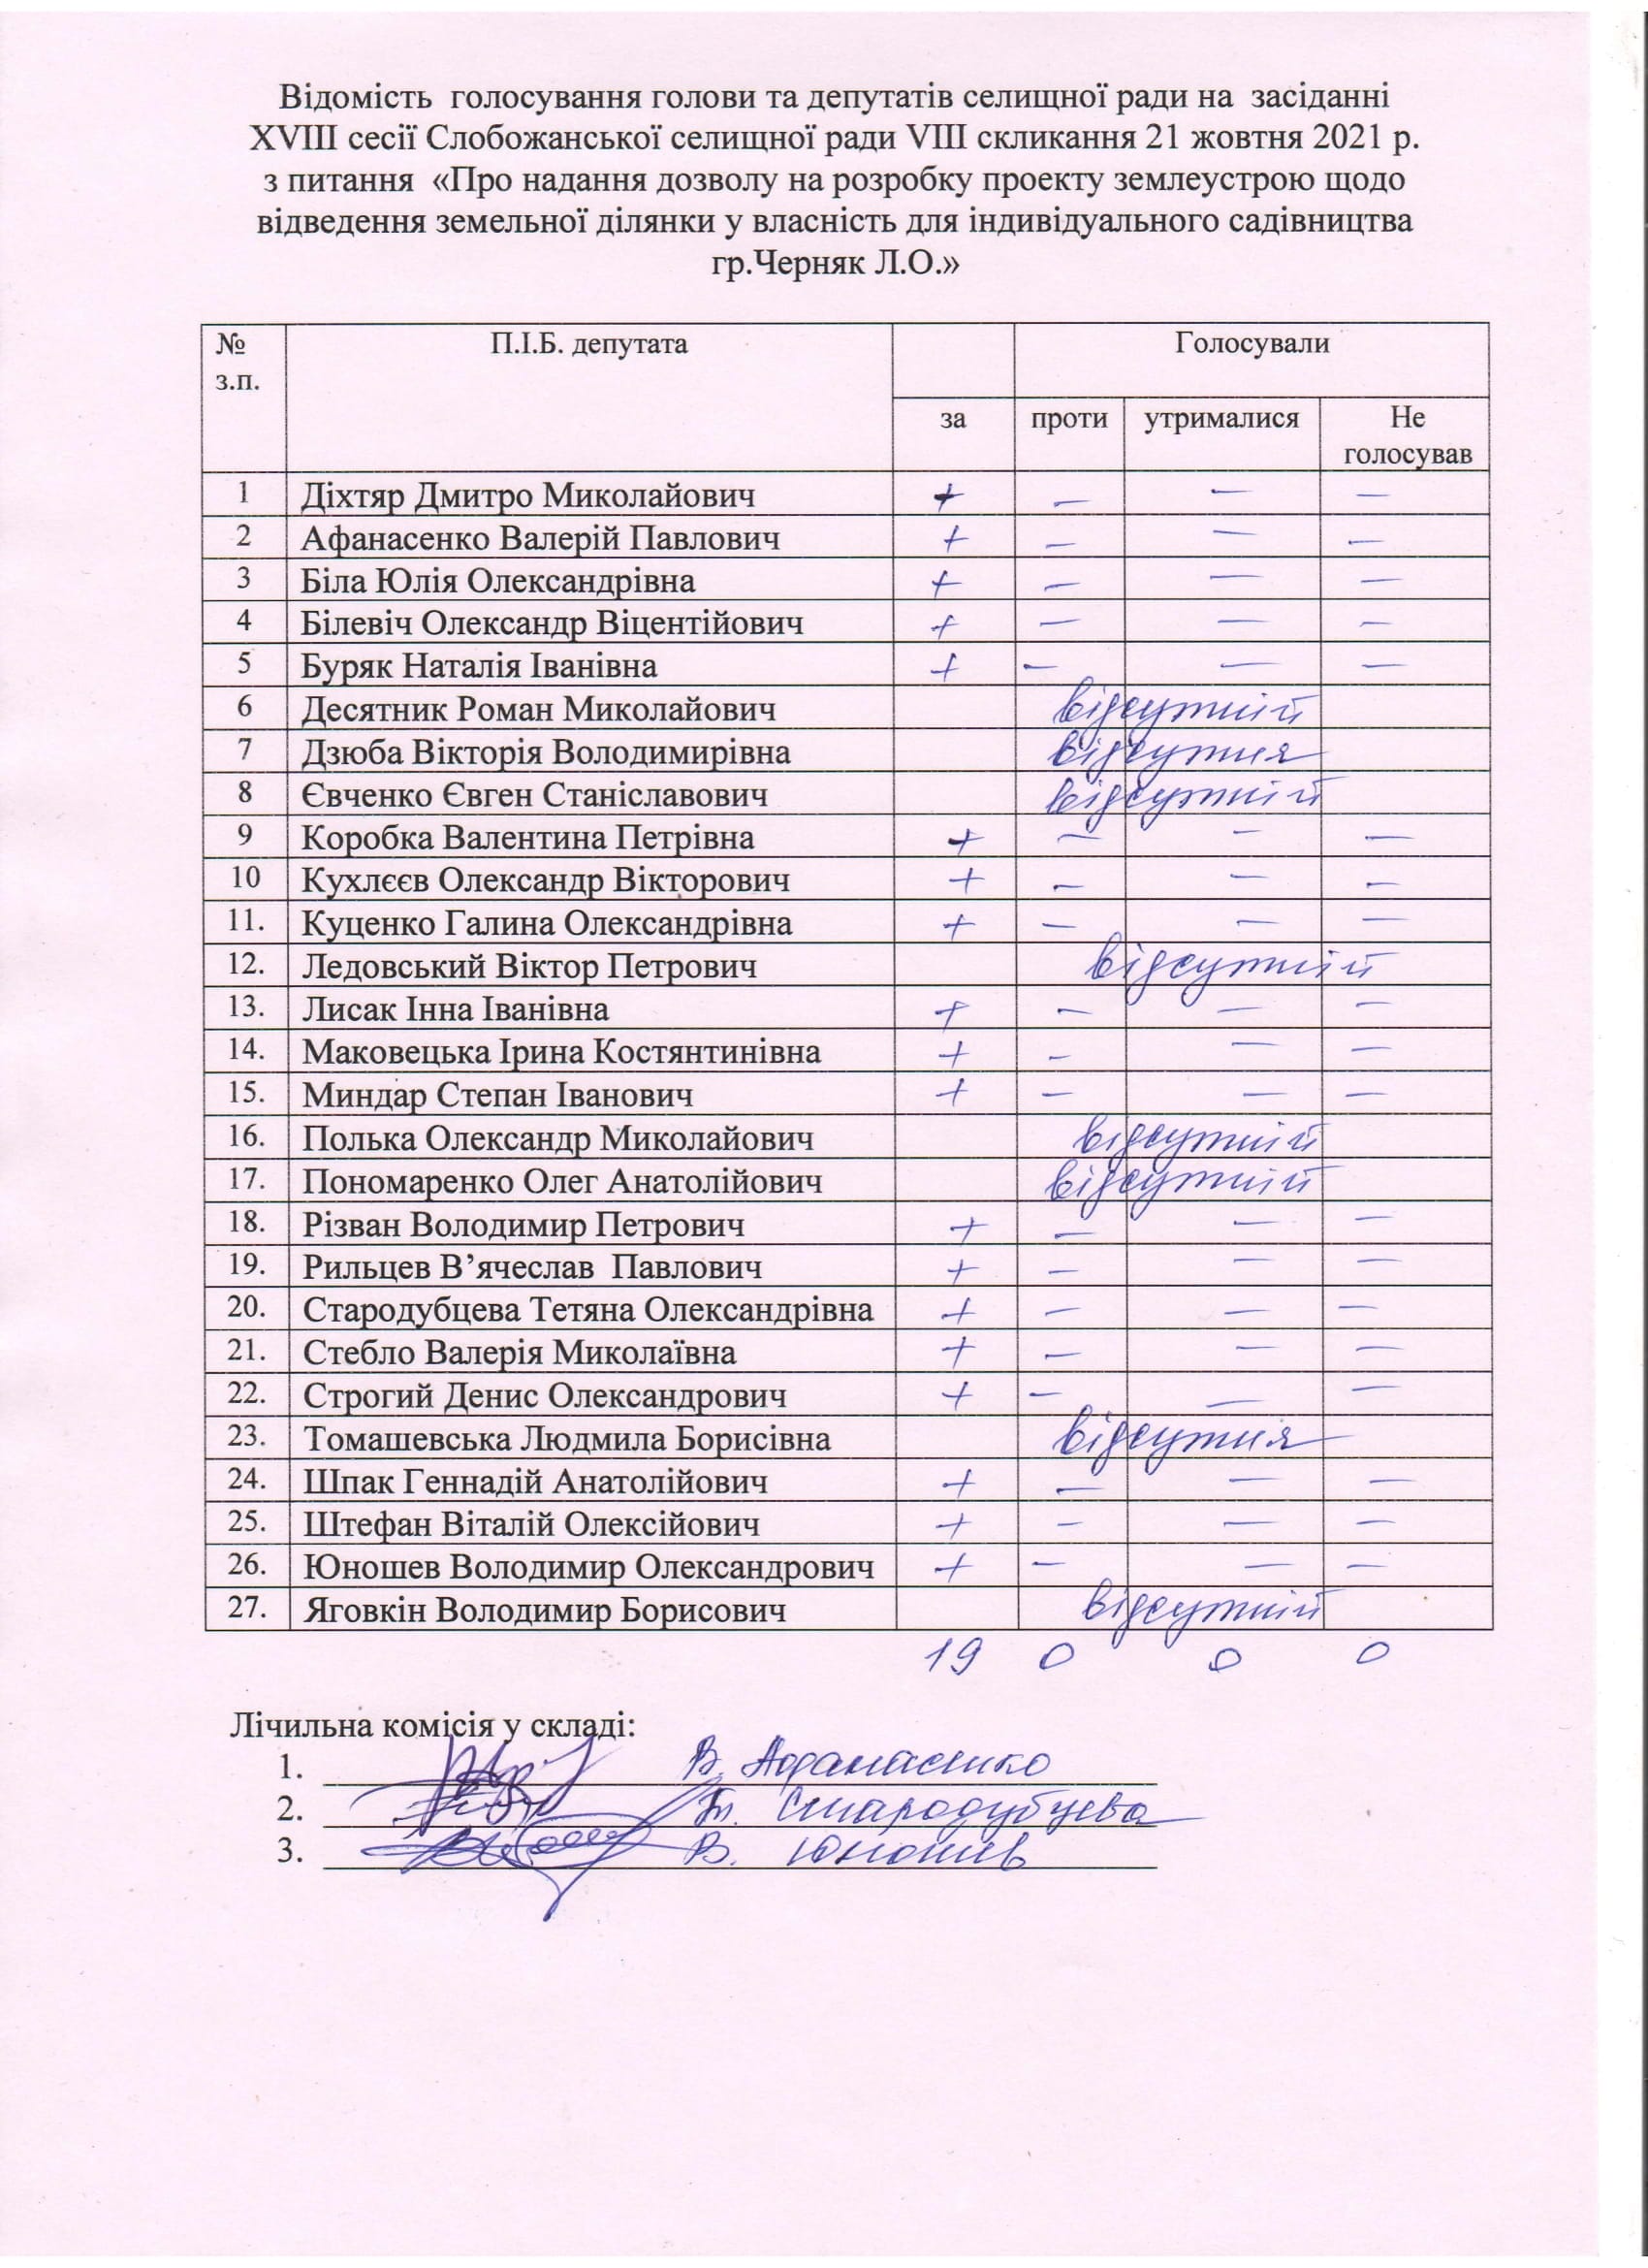 Відомість голосування голови та депутатів селищної ради на засіданні
XVIII сесії Слобожанської селищної ради VIII скликання 21 жовтня 2021 р.
з питання «Про надання дозволу на розробку проекту землеустрою щодо
відведення земельної ділянки у власність для індивідуального садівництва
гр.Черняк Л.О.»
№ з.п. П.І.Б. депутата Голосували
за проти утрималися Не голосував
1 Діхтяр Дмитро Миколайович + — — —
2 Афанасенко Валерій Павлович + — — —
3 Біла Юлія Олександрівна + — — —
4 Білевіч Олександр Віцентійович + — — —
5 Буряк Наталія Іванівна + — — —
6 Десятник Роман Миколайович відсутній
7 Дзюба Вікторія Володимирівна відсутня
8 Євченко Євген Станіславович відсутній
9 Коробка Валентина Петрівна + — — —
10 Кухлєєв Олександр Вікторович + — — —
11. Куценко Галина Олександрівна + — — —
12. Ледовський Віктор Петрович відсутній
13. Лисак Інна Іванівна + — — —
14. Маковецька Ірина Костянтинівна + — — —
15. Миндар Степан Іванович + — — —
16. Полька Олександр Миколайович відсутній
17. Пономаренко Олег Анатолійович відсутній
18. Різван Володимир Петрович + — — —
19. Рильцев В’ячеслав Павлович + — — —
20. Стародубцева Тетяна Олександрівна + — — —
21. Стебло Валерія Миколаївна + — — —
22. Строгий Денис Олександрович + — — —
23. Томашевська Людмила Борисівна відсутня
24. Шпак Геннадій Анатолійович + — — —
25. Штефан Віталій Олексійович + — — —
26. Юношев Володимир Олександрович + — — —
27. Яговкін Володимир Борисович відсутній
19 0 0 0
Лічильна комісія у складі:
1. В. Афанасенко
2. Т. Стародубцева
3. В. Юношев